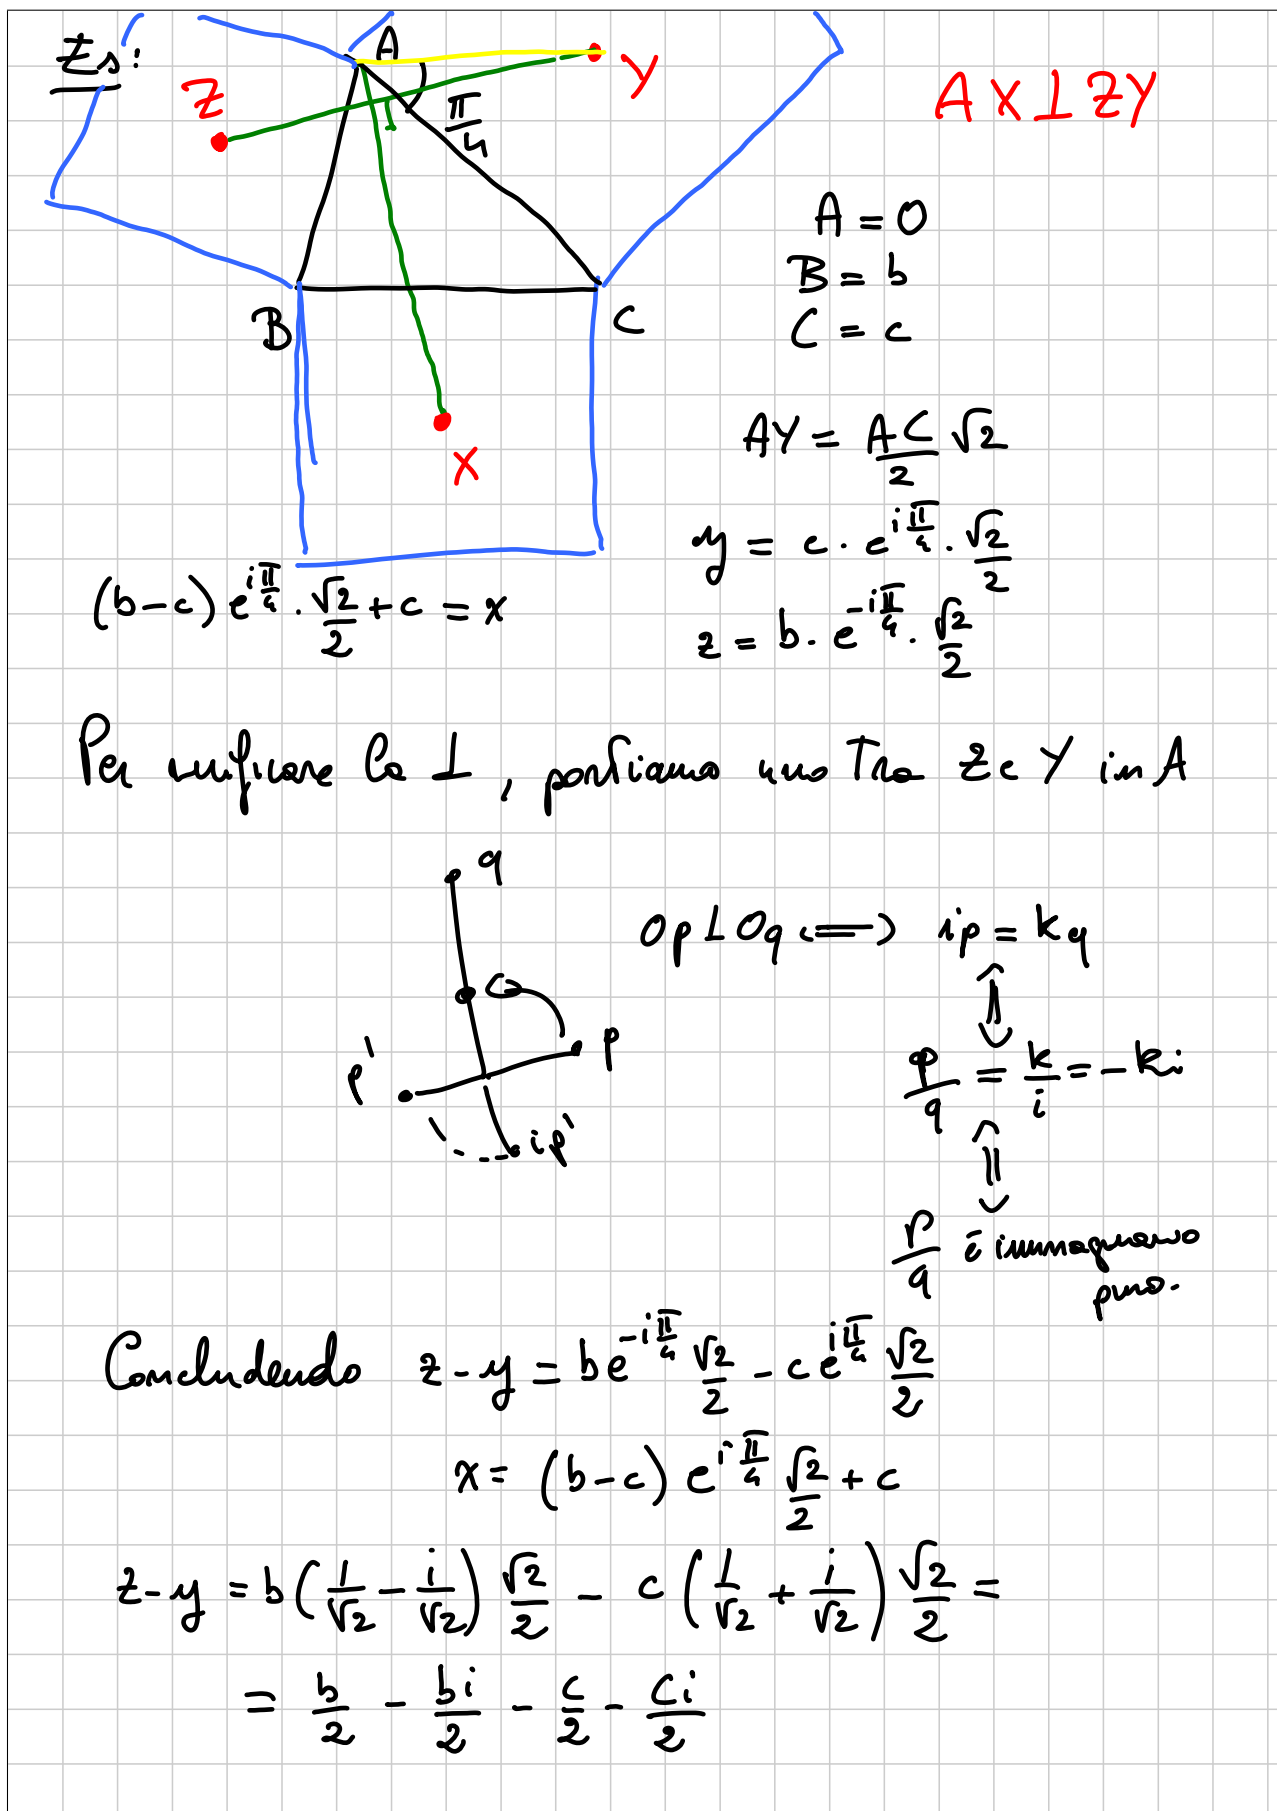 Es:
A
Z
Y
π/4
AX⊥ZY
A = 0
B = b
C = c
B
C
X
AY = AC/2 √2
y = c · e^{iπ/4} · √2/2
(b-c) e^{iπ/4} · √2/2 + c = x
z = b · e^{-iπ/4} · √2/2
Per verificare la ⊥, portiamo uno Tra Z e Y in A
q
Op⊥Oq ⟺ ip = kq
⇕
p
p'
p/q = k/i = -ki
ip'
⇕
p/q è immaginario
puro.
Concludendo z-y = be^{-iπ/4} √2/2 - ce^{iπ/4} √2/2
x = (b-c) e^{iπ/4} √2/2 + c
z-y = b(1/√2 - i/√2) √2/2 - c(1/√2 + i/√2) √2/2 =
= b/2 - bi/2 - c/2 - ci/2